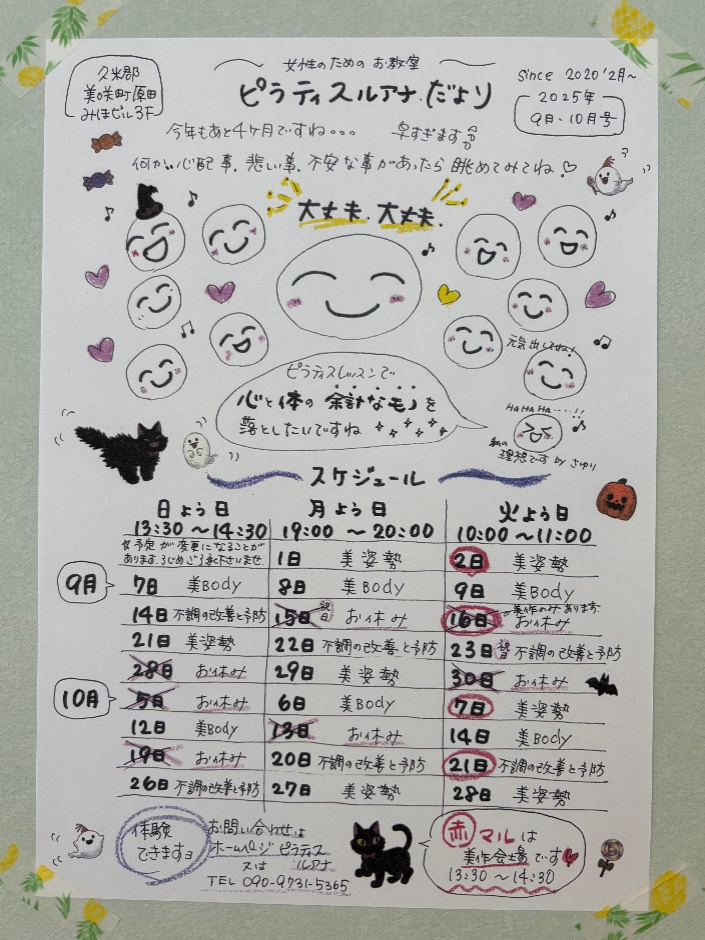 久米郡
美咲町原田
みほビル3F
女性のための お教室
ピラティスルアナ だより
Since 2020'2月~
2025年
9月、10月号
今年もあと4ヶ月ですね。。。 早すぎます
何か、心配事、悲い事、不安な事があったら 眺めてみてね♡
大丈夫、大丈夫、
元気出してね!
ピラティスレッスンで
心と体の 余計なモノを
落としたいですね
HaHaHa・・・・!!
私の
理想です by さゆり
スケジュール
日よう日 月よう日 火よう日
13:30 ~14:30 19:00 ~ 20:00 10:00 ~11:00
予定が変更になることが
あります。
9月
1日 美姿勢 2日 美姿勢
7日 美BODY 8日 美BODY 9日 美BODY
美作のみあります。
14日 不調の改善と予防 15日 祝日 お休み 16日 お休み
21日 美姿勢 22日 不調の改善と予防 23日 祝日 不調の改善と予防
28日 お休み 29日 美姿勢 30日 お休み
10月
5日 お休み 6日 美BODY 7日 美姿勢
12日 美BODY 13日 お休み 14日 美BODY
19日 お休み 20日 不調の改善と予防 21日 不調の改善と予防
26日 不調の改善と予防 27日 美姿勢 28日 美姿勢
体験
できますョ
お問い合わせは
ホームページ ピラティス
又は ルアナ
TEL 090-9731-5365
赤マルは
美作会場です
13:30 ~ 14:30